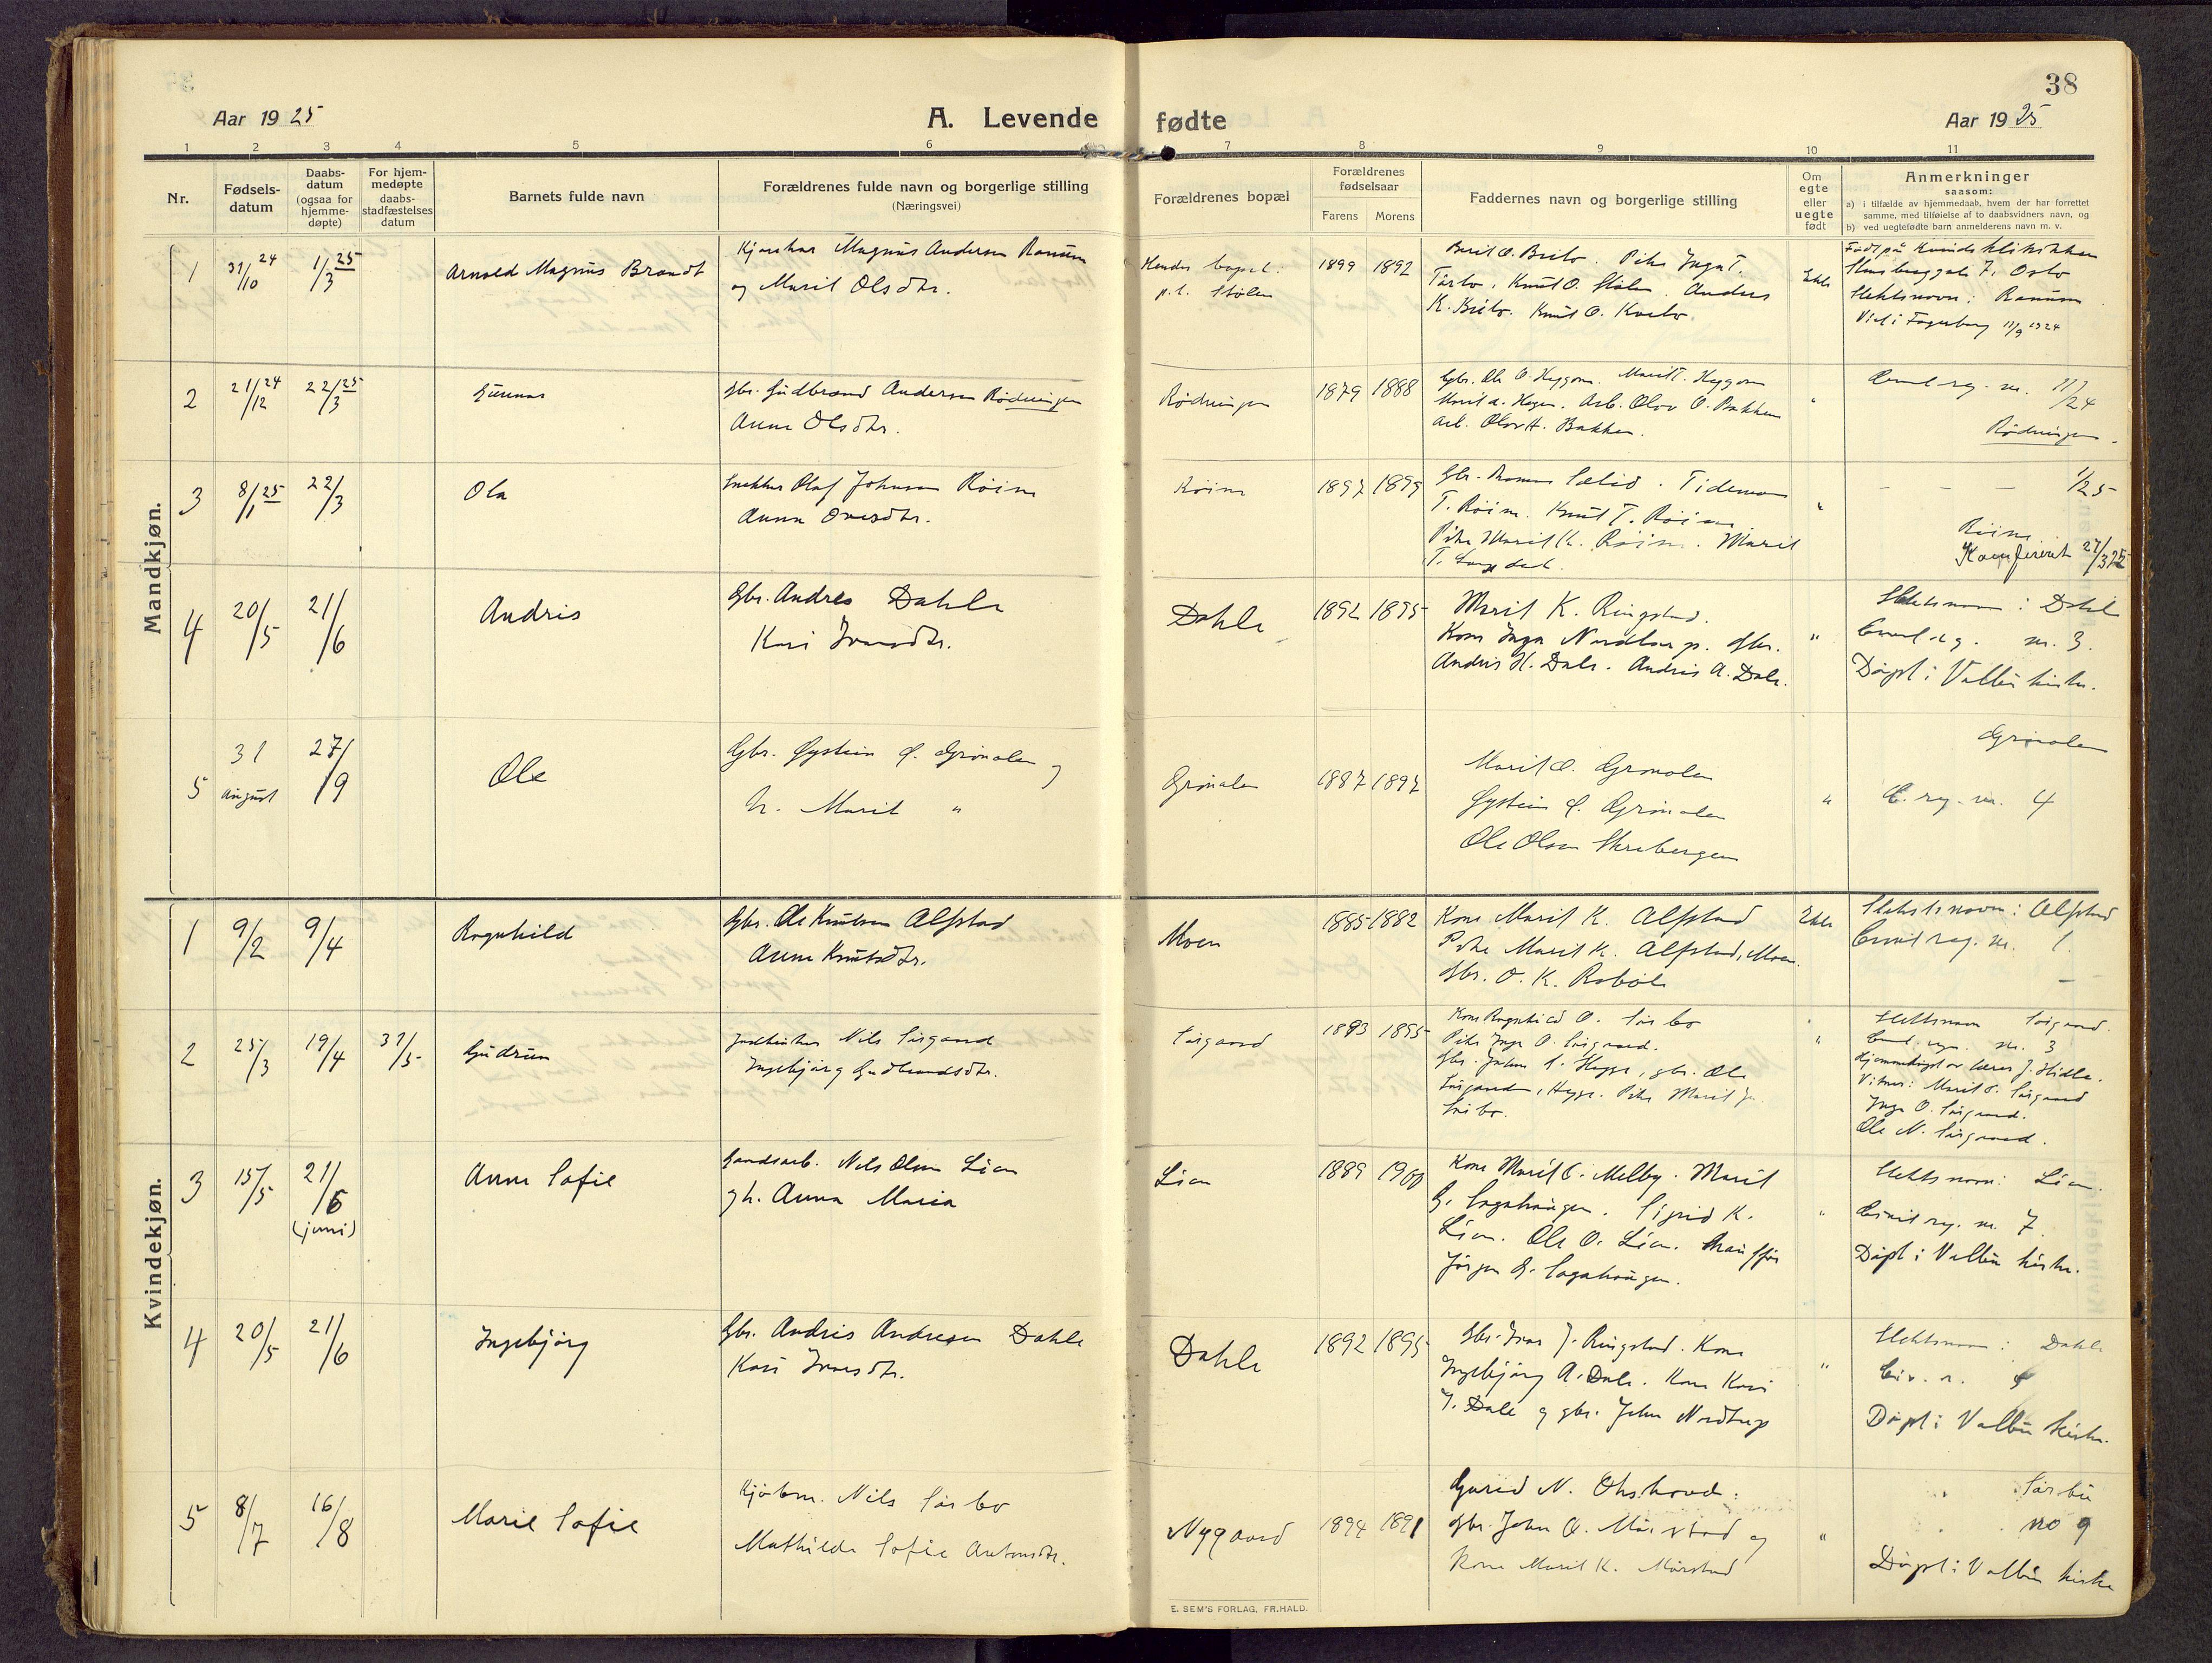 38
Aar 1925
A. Levende fødte
Aar 1925
1 2 3 4 5 6 7 8 9 10 11
Nr.
Fødsels-
datum
Daabs-
datum
(ogsaa for
hjemme-
døpte)
For hjem-
medøpte
daabs-
stadfæstelses
datum
Barnets fulde navn
Forældrenes fulde navn og borgerlige stilling
(Næringsvei)
Forældrenes bopæl
Forældrenes
fødselsaar
Farens Morens
Faddernes navn og borgerlige stilling
Om
egte
eller
uegte
født
Anmerkninger
saasom:
a) i tilfælde av hjemmedaab, hvem der har forrettet
samme, med tilføielse af to daabsvidners navn, og
b) ved uegtefødte barn anmelderens navn m. v.
Mandkjøn.
1 31/10 24 1/3 25 Arnold Magnus Brandt
Magnus Andersen Ranum
og Marit Olsdtr.
Hendes bopæl:
p.t. Stølen
1899 1892
Berit O. Brito. Pike Inga T.
Knut O. Stølen. Andres
K. Brito. Knut O. Kvito.
Ekte
Født på Kvindeklinikken
7, Oslo
Slektsnavn: Ranum
Viet i Fagerborg 11/9 1924
2 21/12 24 22/3 25 Gunnar
Gbr. Gudbrand Andersen Rødningen
Anne Olsdtr.
Rødningen
1879 1888
Gbr. Ole O. Heggom. Marit T. Heggom
Marit A. Hagen. Arb. Olov O. Bakken
Arb. Olov H. Bakken.
"
Civil reg. nr. 11/24
Rødningen.
3 8/1 25 22/3 Ola
Snekker Olaf Johnsen Röine
Anna Ovesdtr.
Röine
1897 1899
Gbr. Lelid. Tideman
T. Röine. Knut T. Röine
Pike Marit K. Röine. Marit
T.
"
— — — 1/25
Röine
Konfirert 27/3 25
4 20/5 21/6 Andris
Gbr. Andres Dahle
Kari Ivarsdtr.
Dahle
1892 1895
Marit K. Ringstad.
Kone Inga Nordtorp. Gbr.
Andris H. Dale. Andris A. Dale.
"
Slektsnavn: Dahle
Civil reg. nr. 3.
Døpt i Volbu kirke.
5 31 august 27/9 Ole
Gbr. Øystein O. Grönolen og
h. Marit "
Grönolen
1887 1897
Marit O. Grönolen
Øystein O. Grönolen
Ole Olsen Skrebergen
"
Grönolen
C. reg. nr. 4
Kvindekjøn.
1 9/2 9/4 Ragnhild
Gbr. Ole Knutsen Alfstad
Anne Knutsdtr.
Moen
1885 1882
Kone Marit K. Alfstad
Pike Marit K. Alfstad, Moen.
Gbr. O. K. Robøle
Ekte
Slektsnavn: Alfstad
Civil reg. nr. 1.
2 25/3 19/4 31/5 Gudrun
Nils Sörgaard
Ingebjørg Gudbrandsdtr.
Sörgaard
1893 1895
Kone Ragnhild O. Sörbo
Pike Inga O. Sörgaard.
Gbr. John S. Hegge, gbr. Ole
Sörgaard, Hegge. Pike Marit
Sörbo.
"
Slektsnavn Sörgaard.
Civil reg. nr. 3
Hjemmedøpt av lærer J. Hidle.
Vitner: Marit O. Sörgaard
Inga O. Sörgaard.
Ole N. Sörgaard.
3 15/5 21/6 (juni) Anne Sofie
Gaardsarb. Nils Olsen Lien
og h. Anna Maria
Lien
1889 1900
Kone Marit O. Melby. Marit
G. Sagahaugen. Sigrid K.
Lien. Ole O. Lien. Chauffør
Jørgen G. Sagahaugen.
"
Slektsnavn: Lien.
Civil reg. nr. 7
Døpt i Volbu kirke.
4 20/5 21/6 Ingebjørg
Gbr. Andris Andresen Dahle
Kari Ivarsdtr.
Dahle
1892 1895
Gbr. Ivar J. Ringstad. Kone
Ingebjørg A. Dale. Kone Kari
J. Dale og gbr. John Nordtorp
"
Slektsnavn: Dahle
Civ. r.
Døpt i Volbu kirke.
5 8/7 16/8 Marie Sofie
Kjøbm. Nils Sörbo
Mathilde Sofie Antonsdtr.
Nygaard
1894 1891
Gurid N. Okshovd.
Gbr. John O. Mörstad og
Kone Marit K. Mörstad
"
Sörbu
no 9
Døpt i Volbu kirke
E. SEM'S FORLAG, FR.HALD.